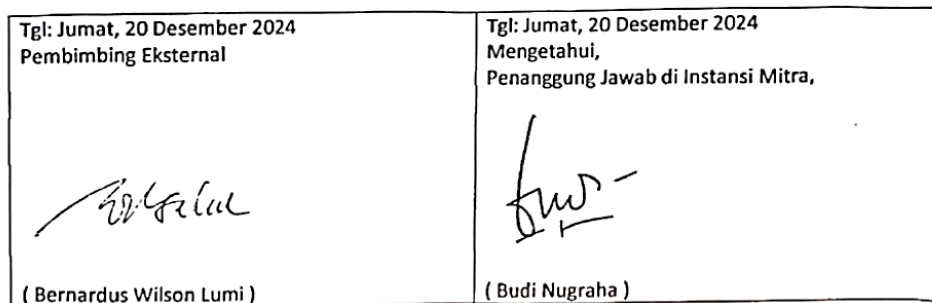 Tgl: Jumat, 20 Desember 2024
Pembimbing Eksternal
( Bernardus Wilson Lumi )
Tgl: Jumat, 20 Desember 2024
Mengetahui,
Penanggung Jawab di Instansi Mitra,
( Budi Nugraha )